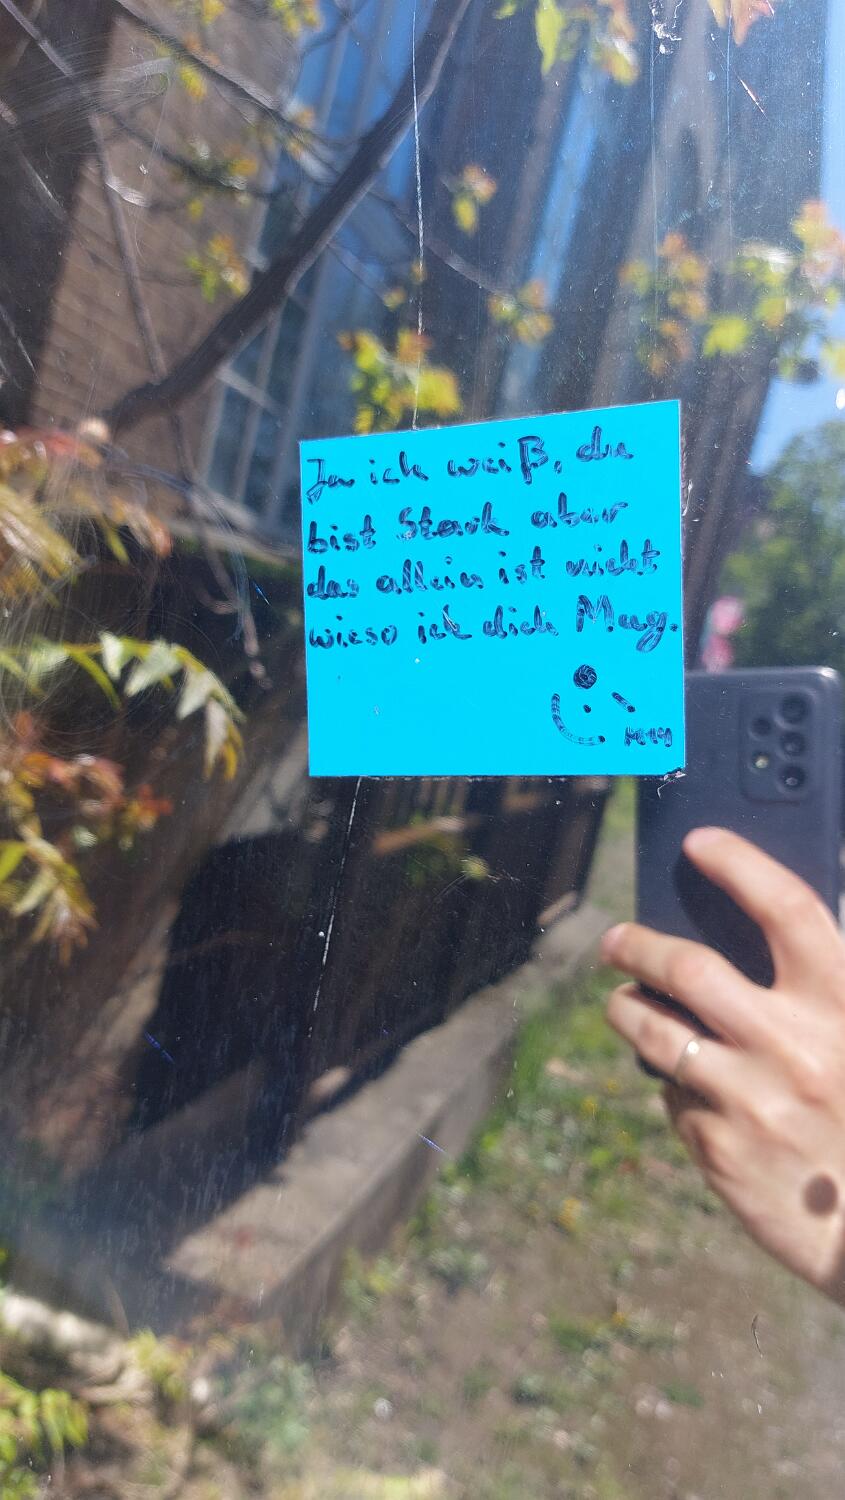 Ja ich weiß, du
bist Stark aber
das allein ist nicht
wieso ich dich Mag.